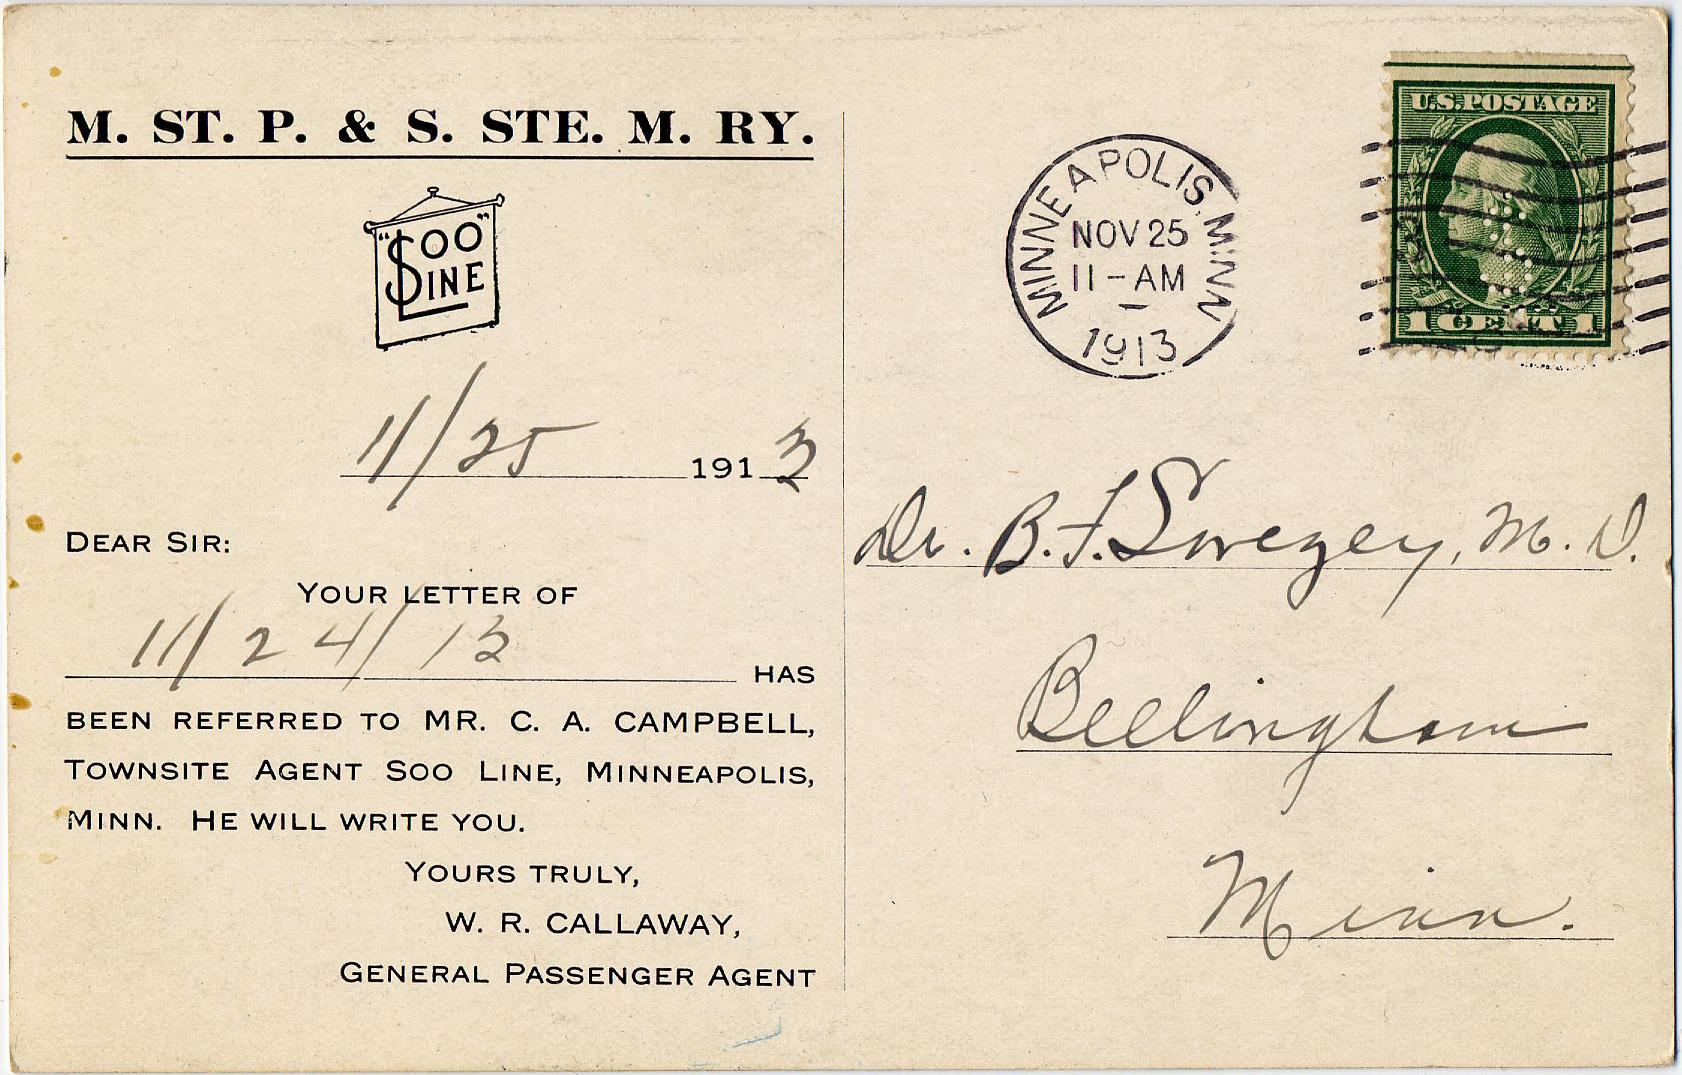 M. ST. P. & S. STE. M. RY.
"SOO"
LINE
11/25 1913
DEAR SIR:
YOUR LETTER OF
11/24/13 HAS
BEEN REFERRED TO MR. C. A. CAMPBELL,
TOWNSITE AGENT SOO LINE, MINNEAPOLIS,
MINN. HE WILL WRITE YOU.
YOURS TRULY,
W. R. CALLAWAY,
GENERAL PASSENGER AGENT
MINNEAPOLIS, MINN
NOV 25
11-AM
1913
U.S. POSTAGE
1 CENT 1
Dr. B. F. Swezey, M. D.
Bellingham
Minn.